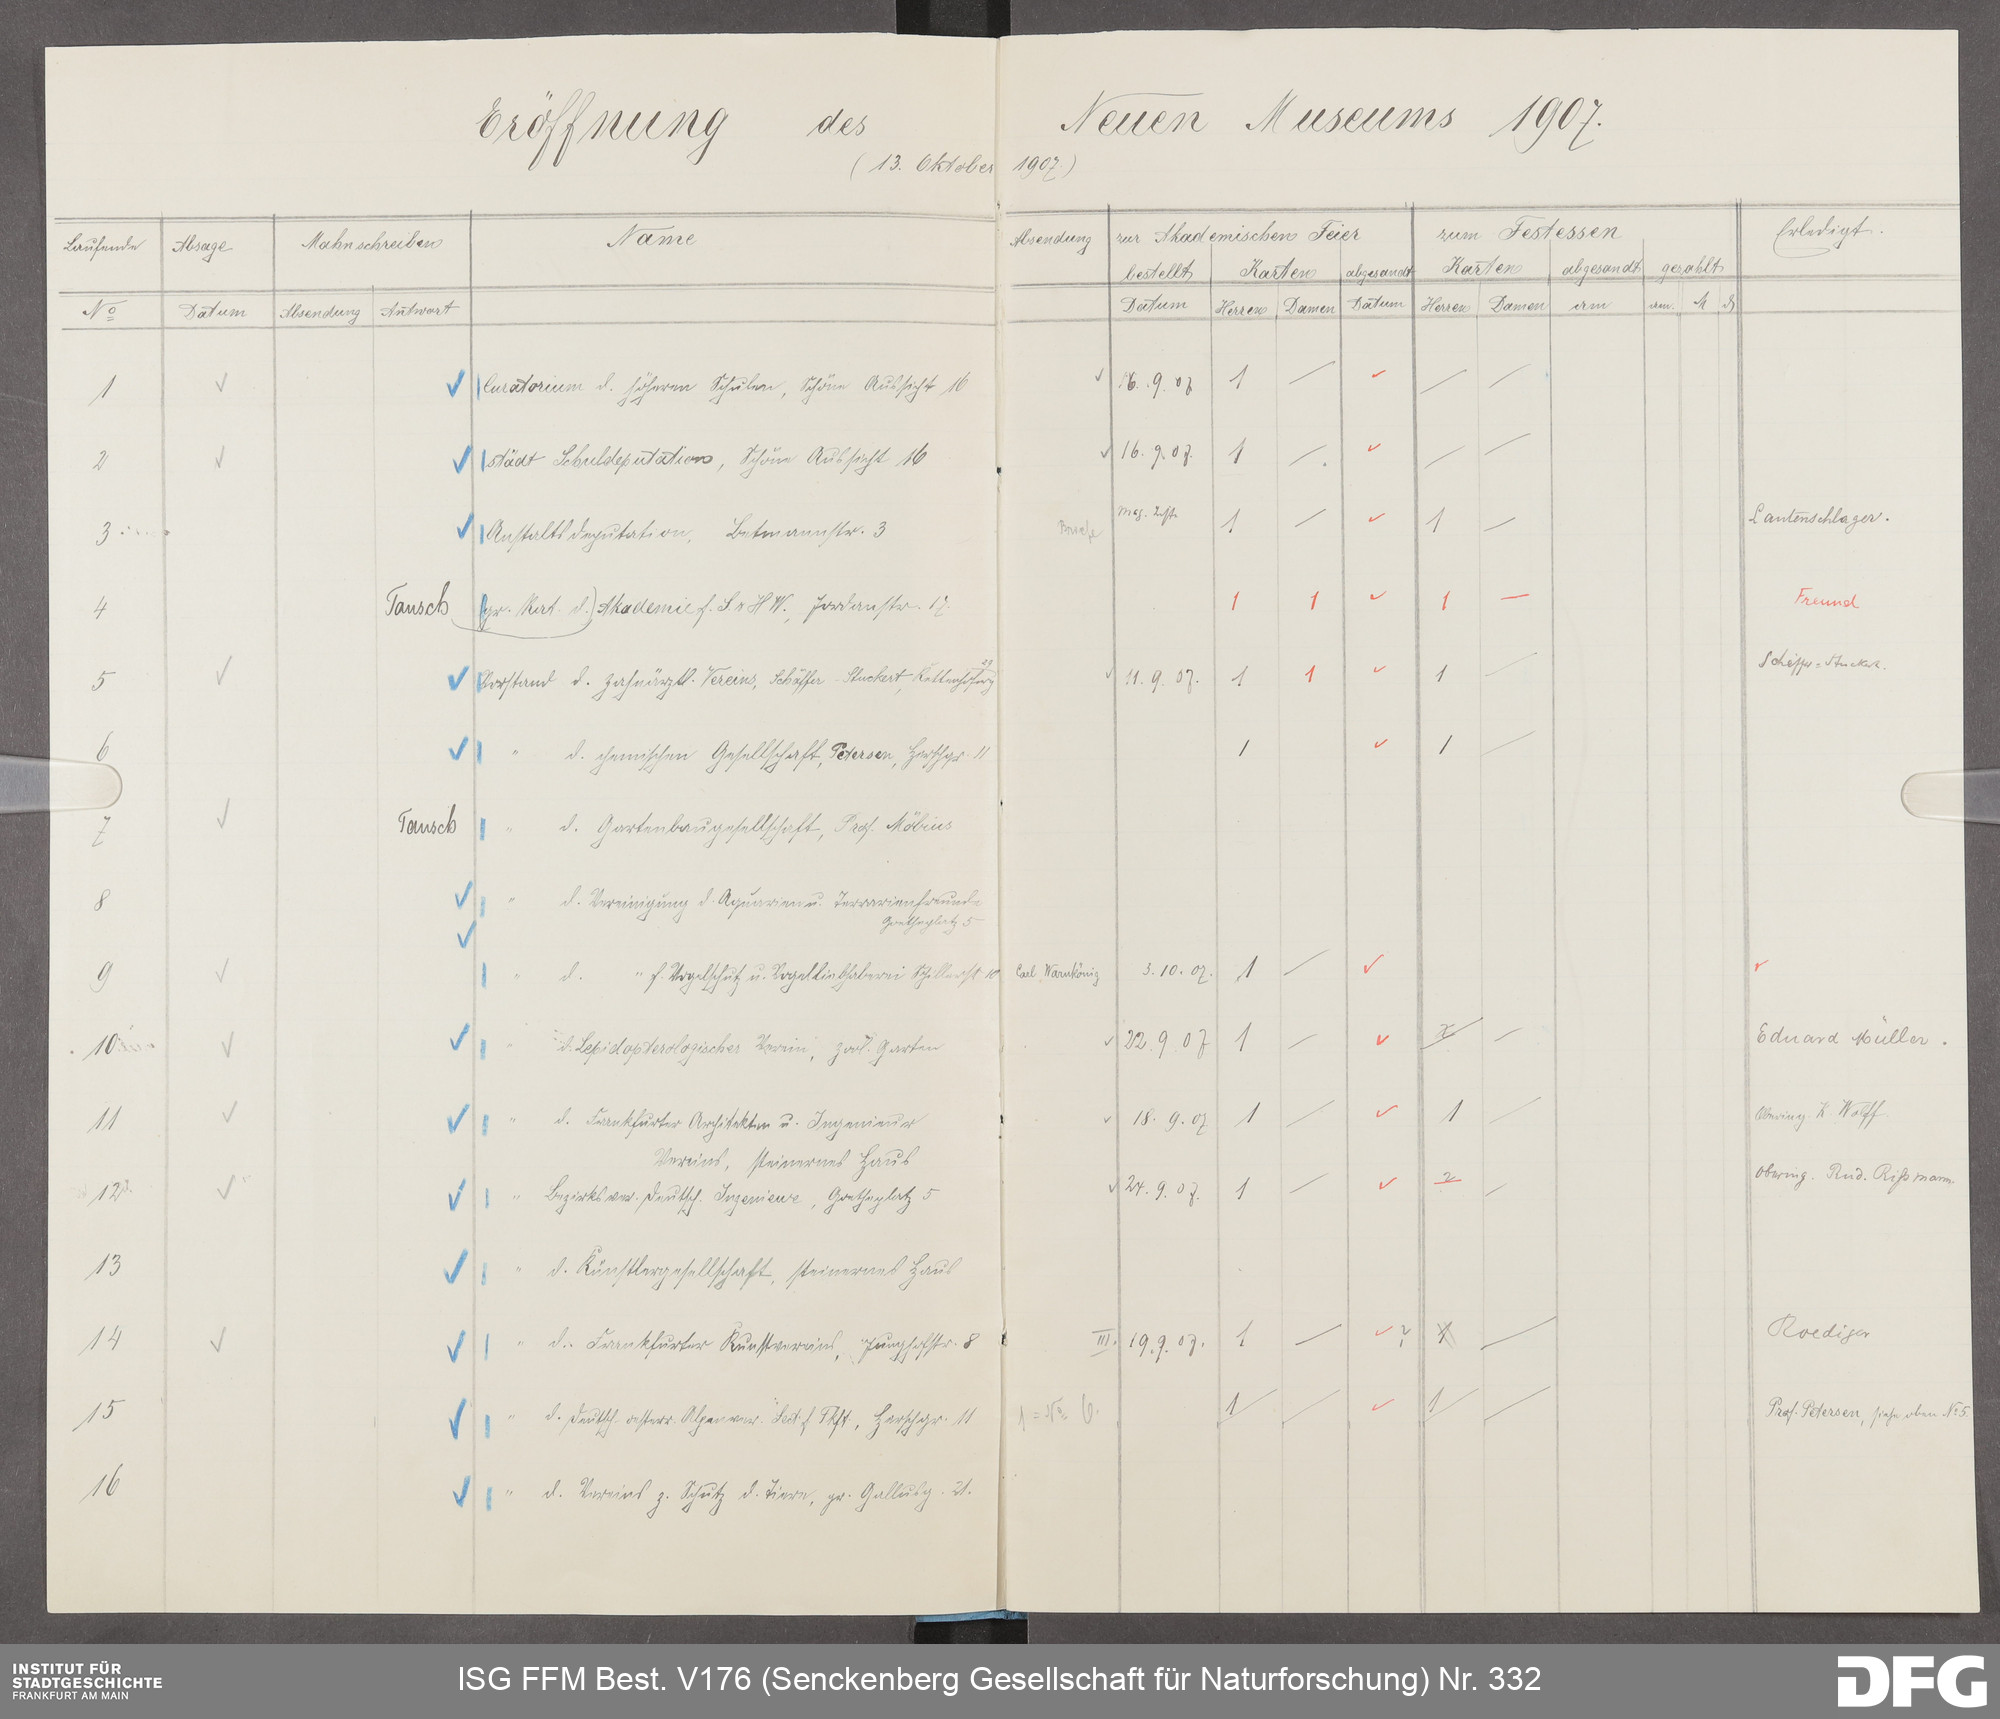 Eröffnung des Neuen Museums 1907.
(13. Oktober 1907.)
Laufende Absage Mahnschreiben Name Absendung zur Akademischen Feier zum Festessen Erledigt.
bestellt Karten abgesandt Karten abgesandt gezahlt
No Datum Absendung Antwort Datum Herren Damen Datum Herren Damen am am. M
1 ✓ ✓ Curatorium d. höheren Schulen, Schöne Aussicht 16 ✓ 16. 9. 07 1 / ✓ / /
2 ✓ ✓ städt Schuldeputation, Schöne Aussicht 16 ✓ 16. 9. 07. 1 / ✓ / /
3 ✓ Anstaltsdeputation, Betmannstr. 3 1 / ✓ 1 / Lautenschlager.
4 Tausch (gr. Rat. d.) Akademie f. S. u H W., Jordanstr. 17. 1 1 ✓ 1 — Freund
5 ✓ ✓ Vorstand d. zahnärztl. Vereins, Schäffer-Stuckert, Kettenhofweg 29 ✓ 11. 9. 07. 1 1 ✓ 1 / Schäffer-Stuckert.
6 ✓ " d. chemischen Gesellschaft, Petersen, Hermesgr. 11 1 ✓ 1 /
7 ✓ Tausch " d. Gartenbaugesellschaft, Prof. Möbius
8 ✓ " d. Vereinigung d. Aquarien u. Terrarienfreunde
Goetheplatz 5
9 ✓ ✓ " d. " f. Vogelschutz u. Vogelliebhaberei Schillerstr. 10 Carl Warnkönig 3. 10. 07. 1 / ✓ ✓
10 ✓ ✓ " d. Lepidopterologischer Verein, zool. Garten ✓ 22. 9. 07 1 / ✓ / Eduard Müller.
11 ✓ ✓ " d. Frankfurter Architekten u. Ingenieur ✓ 18. 9. 07 1 / ✓ 1 / Obering. K. Wolff
Vereins, steinernes Haus
12 ✓ ✓ " Bezirksver. deutsch. Ingenieure, Goetheplatz 5 ✓ 24. 9. 07. 1 / ✓ 2 / Obering. Rud. Rißmann.
13 ✓ " d. Künstlergesellschaft, steinernes Haus
14 ✓ ✓ " d. Frankfurter Kunstvereins, Junghofstr. 8 III. 19. 9. 07. 1 / ✓ ? 1 / Roediger
15 ✓ " d. deutsch. oesterr. Alpenver. Sect. f. Fkft., 11 1 = No 6. 1 / ✓ 1 / Prof. Petersen, siehe oben No 5.
16 ✓ " d. Vereins z. Schutz d. Tiere, gr. Gallusg. 21.
INSTITUT FÜR
STADTGESCHICHTE
FRANKFURT AM MAIN
ISG FFM Best. V176 (Senckenberg Gesellschaft für Naturforschung) Nr. 332
DFG